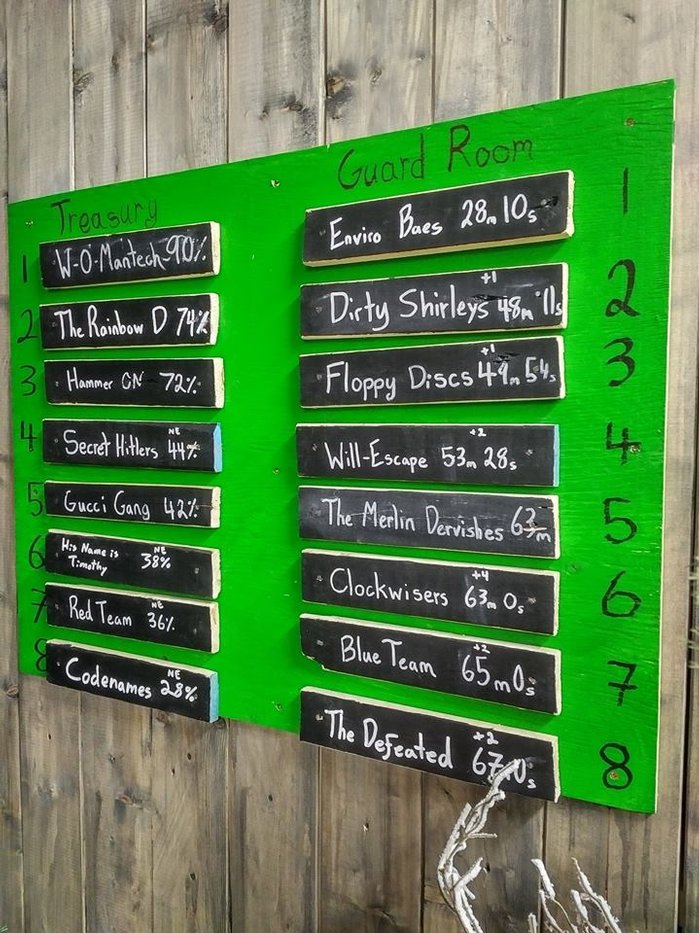 Treasury
1 W-O-Mantech 90%
2 The Rainbow D 74%
3 Hammer ON 72%
NE
4 Secret Hitlers 44%
5 Gucci Gang 42%
NE
6 His Name is
Timothy 38%
NE
7 Red Team 36%
NE
8 Codenames 28%
Guard Room
Enviro Baes 28m 10s 1
+1
Dirty Shirleys 48m 11s 2
+1
Floppy Discs 49m 54s 3
+2
Will-Escape 53m 28s 4
The Merlin Dervishes 63m 5
+4
Clockwisers 63m 0s 6
+2
Blue Team 65m 0s 7
+2
The Defeated 67m 0s 8